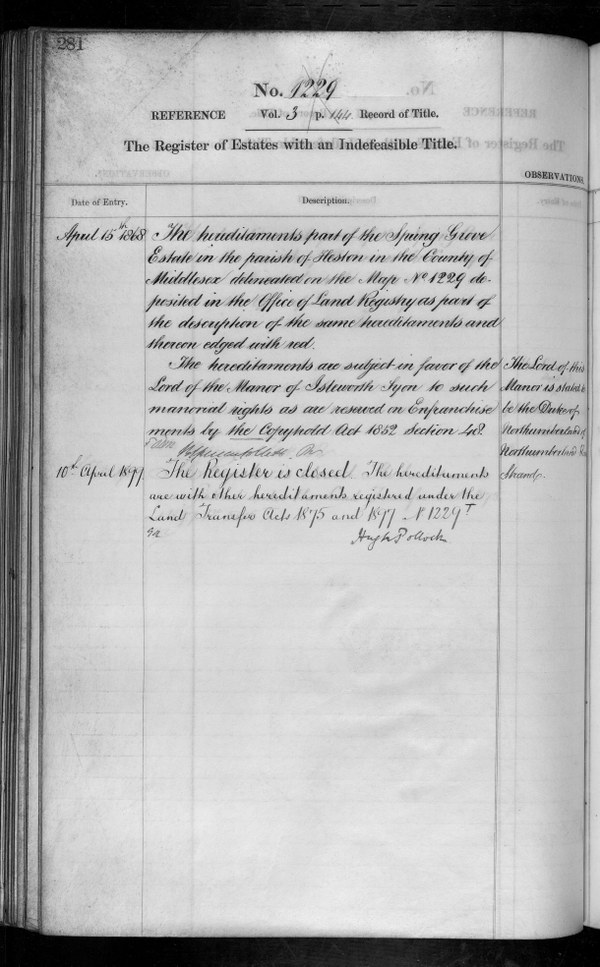 281
No. 1229
REFERENCE Vol. 3 p. 144 Record of Title.
The Register of Estates with an Indefeasible Title.
OBSERVATIONS
Date of Entry.
Description.
April 15th 1868
The hereditaments part of the Spring Grove
Estate in the parish of Heston in the County of
Middlesex delineated on the Map No 1229 de-
posited in the Office of Land Registry as part of
the description of the same hereditaments and
thereon edged with red.
The hereditaments are subject in favor of the
Lord of the Manor of Isleworth Syon to such
manorial rights as are reserved on Enfranchise
ments by the Copyhold Act 1852 section 48.
The Lord of this
Manor is stated to
be the Duke of
Northumberland of
Northumberland
Strand.
10th April 1899
The Register is closed. The hereditaments
are with other hereditaments registered under the
Land Transfer Acts 1875 and 1897 No 1229 T
Hugh Pollock